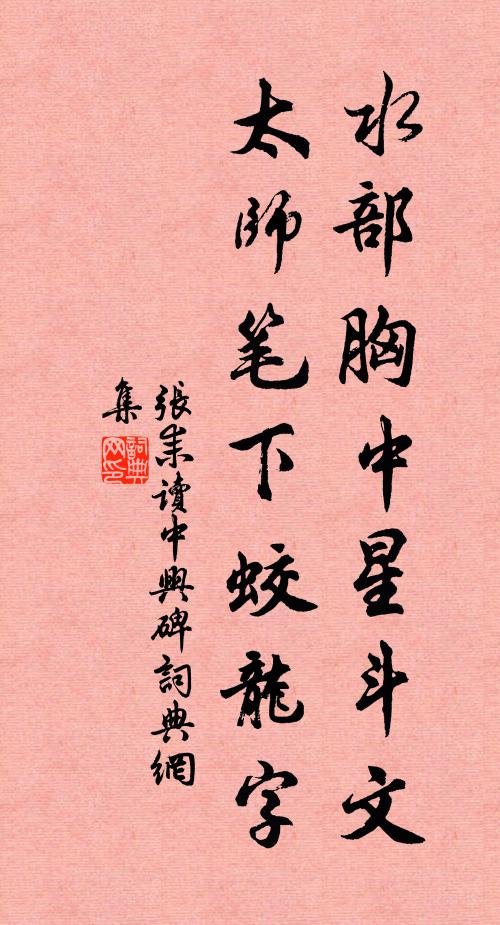 水部胸中星斗文
太師笔下蛟龍字
張耒讀中興碑詞典網
集
詞典网印